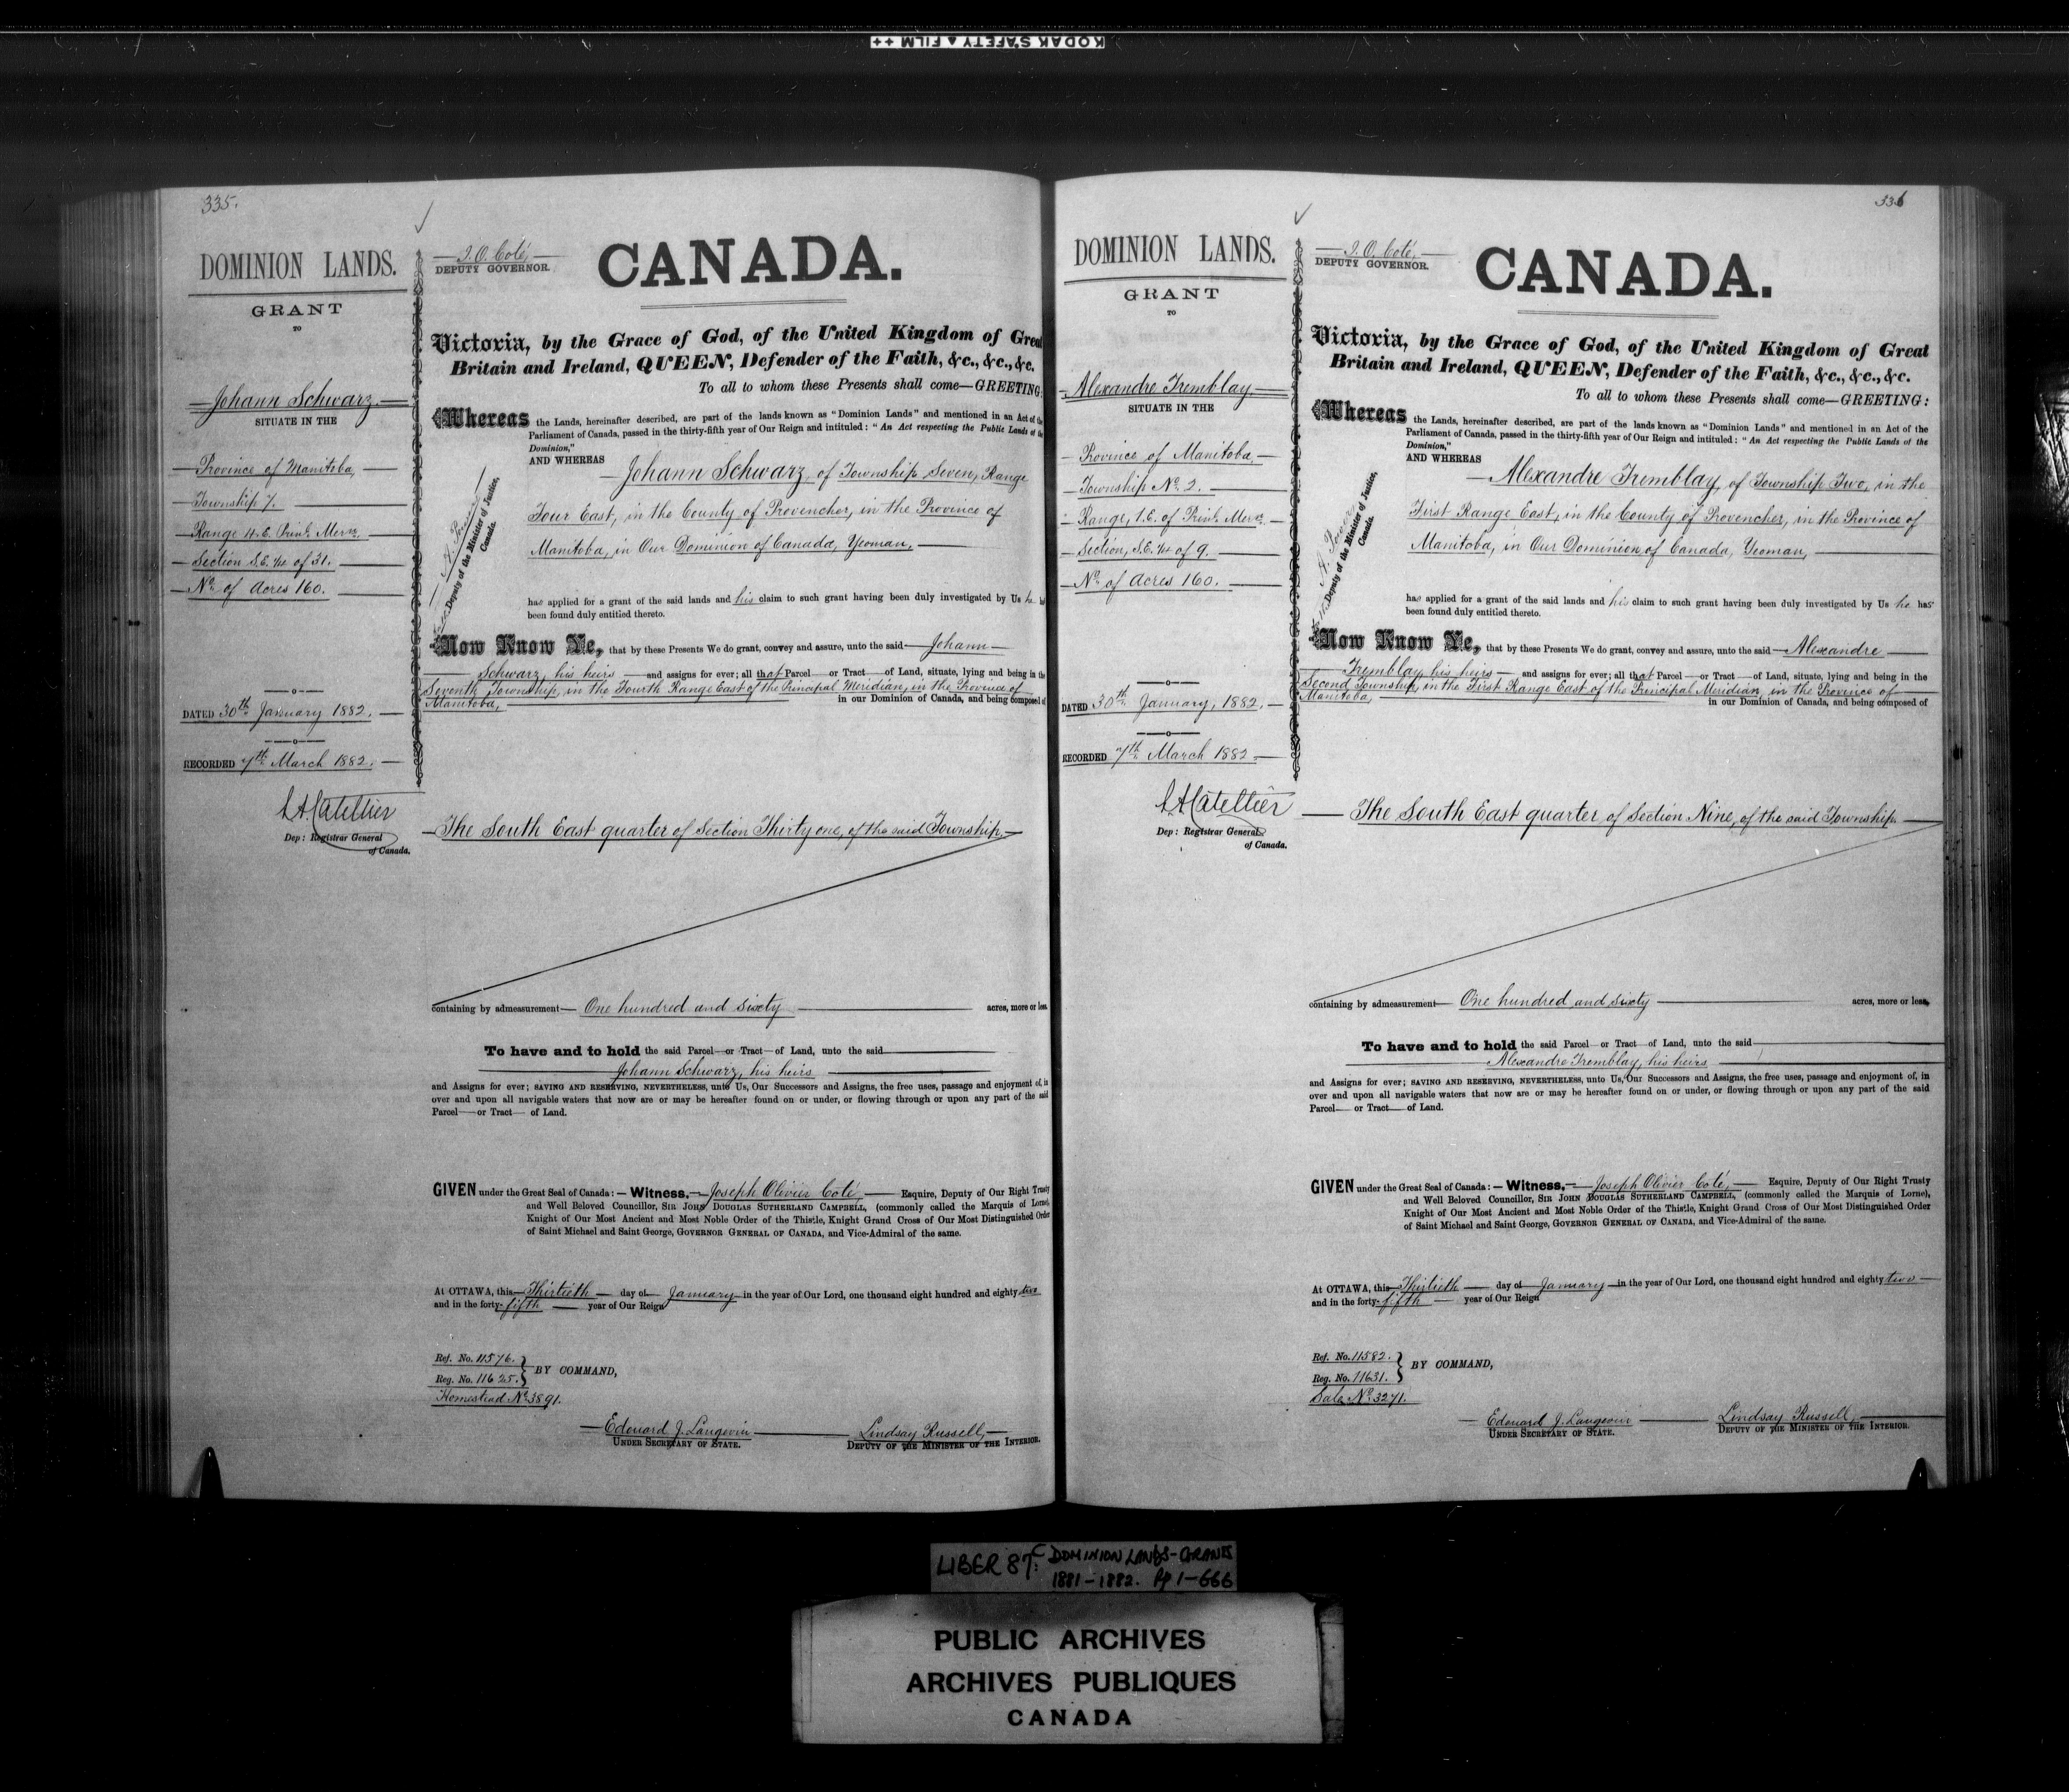 KODAK SAFETY ▲ FILM ++
335.
DOMINION LANDS.
GRANT
TO
Johann Schwarz.
SITUATE IN THE
Province of Manitoba,
Township 7.
Range 4. E. Prinl. Mern.
Section S.E. 1/4 of 31.
No. of Acres 160.
DATED 30th January 1882.
RECORDED 7th March 1882.
L.A. Catellier
Dep: Registrar General
of Canada.
J. O. Coté,
DEPUTY GOVERNOR.
CANADA.
Deputy of the Minister of Justice,
Canada.
Victoria, by the Grace of God, of the United Kingdom of Great
Britain and Ireland, QUEEN, Defender of the Faith, &c., &c., &c.
To all to whom these Presents shall come—GREETING:
Whereas the Lands, hereinafter described, are part of the lands known as "Dominion Lands" and mentioned in an Act of the
Parliament of Canada, passed in the thirty-fifth year of Our Reign and intituled: "An Act respecting the Public Lands of the
Dominion,"
AND WHEREAS Johann Schwarz, of Township Seven, Range
Four East, in the County of Provencher, in the Province of
Manitoba, in Our Dominion of Canada, Yeoman,
has applied for a grant of the said lands and his claim to such grant having been duly investigated by Us he
been found duly entitled thereto.
Now Know Ye, that by these Presents We do grant, convey and assure, unto the said Johann
Schwarz, his heirs and assigns for ever; all that Parcel or Tract of Land, situate, lying and being in the
Seventh Township, in the Fourth Range East of the Principal Meridian, in the Province of
Manitoba, in our Dominion of Canada, and being composed of
The South East quarter of Section Thirty one, of the said Township.
containing by admeasurement One hundred and sixty acres, more or less
To have and to hold the said Parcel or Tract of Land, unto the said
Johann Schwarz, his heirs
and Assigns for ever; SAVING AND RESERVING, NEVERTHELESS, unto Us, Our Successors and Assigns, the free uses, passage and enjoyment of, in
over and upon all navigable waters that now are or may be hereafter found on or under, or flowing through or upon any part of the said
Parcel or Tract of Land.
GIVEN under the Great Seal of Canada:—Witness, Joseph Olivier Coté, Esquire, Deputy of Our Right Trusty
and Well Beloved Councillor, SIR JOHN DOUGLAS SUTHERLAND CAMPBELL, (commonly called the Marquis of Lorne),
Knight of Our Most Ancient and Most Noble Order of the Thistle, Knight Grand Cross of Our Most Distinguished Order
of Saint Michael and Saint George, GOVERNOR GENERAL OF CANADA, and Vice-Admiral of the same.
At OTTAWA, this Thirtieth day of January in the year of Our Lord, one thousand eight hundred and eighty two
and in the forty-fifth year of Our Reign
Ref. No. 11576.
Reg. No. 11625. } BY COMMAND,
Homestead No. 3891.
Edouard J. Langevin Lindsay Russell,
UNDER SECRETARY OF STATE. DEPUTY OF THE MINISTER OF THE INTERIOR.
336
DOMINION LANDS.
GRANT
TO
Alexandre Tremblay.
SITUATE IN THE
Province of Manitoba,
Township No. 2.
Range, 1. E. of Prinl. Mern.
Section, S.E. 1/4 of 9.
No. of Acres 160.
DATED 30th January, 1882.
RECORDED 7th March 1882.
L.A. Catellier
Dep: Registrar General
of Canada.
J. O. Coté,
DEPUTY GOVERNOR.
CANADA.
Deputy of the Minister of Justice,
Canada.
Victoria, by the Grace of God, of the United Kingdom of Great
Britain and Ireland, QUEEN, Defender of the Faith, &c., &c., &c.
To all to whom these Presents shall come—GREETING:
Whereas the Lands, hereinafter described, are part of the lands known as "Dominion Lands" and mentioned in an Act of the
Parliament of Canada, passed in the thirty-fifth year of Our Reign and intituled: "An Act respecting the Public Lands of the
Dominion,"
AND WHEREAS Alexandre Tremblay, of Township Two, in the
First Range East, in the County of Provencher, in the Province of
Manitoba, in Our Dominion of Canada, Yeoman,
has applied for a grant of the said lands and his claim to such grant having been duly investigated by Us he has
been found duly entitled thereto.
Now Know Ye, that by these Presents We do grant, convey and assure, unto the said Alexandre
Tremblay, his heirs and assigns for ever; all that Parcel or Tract of Land, situate, lying and being in the
Second Township, in the First Range East of the Principal Meridian, in the Province of
Manitoba, in our Dominion of Canada, and being composed of
The South East quarter of Section Nine, of the said Township.
containing by admeasurement One hundred and sixty acres, more or less,
To have and to hold the said Parcel or Tract of Land, unto the said
Alexandre Tremblay, his heirs
and Assigns for ever; SAVING AND RESERVING, NEVERTHELESS, unto Us, Our Successors and Assigns, the free uses, passage and enjoyment of, in
over and upon all navigable waters that now are or may be hereafter found on or under, or flowing through or upon any part of the said
Parcel or Tract of Land.
GIVEN under the Great Seal of Canada:—Witness, Joseph Olivier Coté, Esquire, Deputy of Our Right Trusty
and Well Beloved Councillor, SIR JOHN DOUGLAS SUTHERLAND CAMPBELL, (commonly called the Marquis of Lorne),
Knight of Our Most Ancient and Most Noble Order of the Thistle, Knight Grand Cross of Our Most Distinguished Order
of Saint Michael and Saint George, GOVERNOR GENERAL OF CANADA, and Vice-Admiral of the same.
At OTTAWA, this Thirtieth day of January in the year of Our Lord, one thousand eight hundred and eighty two
and in the forty-fifth year of Our Reign
Ref. No. 11582.
Reg. No. 11631. } BY COMMAND,
Sale No. 3271.
Edouard J. Langevin Lindsay Russell,
UNDER SECRETARY OF STATE. DEPUTY OF THE MINISTER OF THE INTERIOR.
LIBER 87C: DOMINION LANDS-GRANTS
1881-1882. Pp 1-666
PUBLIC ARCHIVES
ARCHIVES PUBLIQUES
CANADA